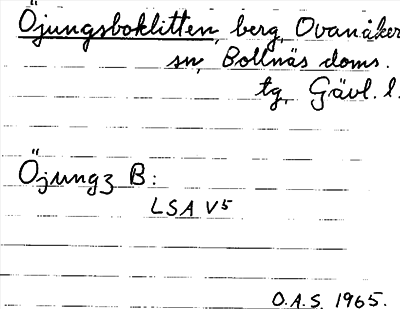 Öjungsboklitten, berg, Ovanåker
sn, Bollnäs doms.
tg, Gävl. l.
Öjungz B:
LSA V5
O.A.S. 1965.